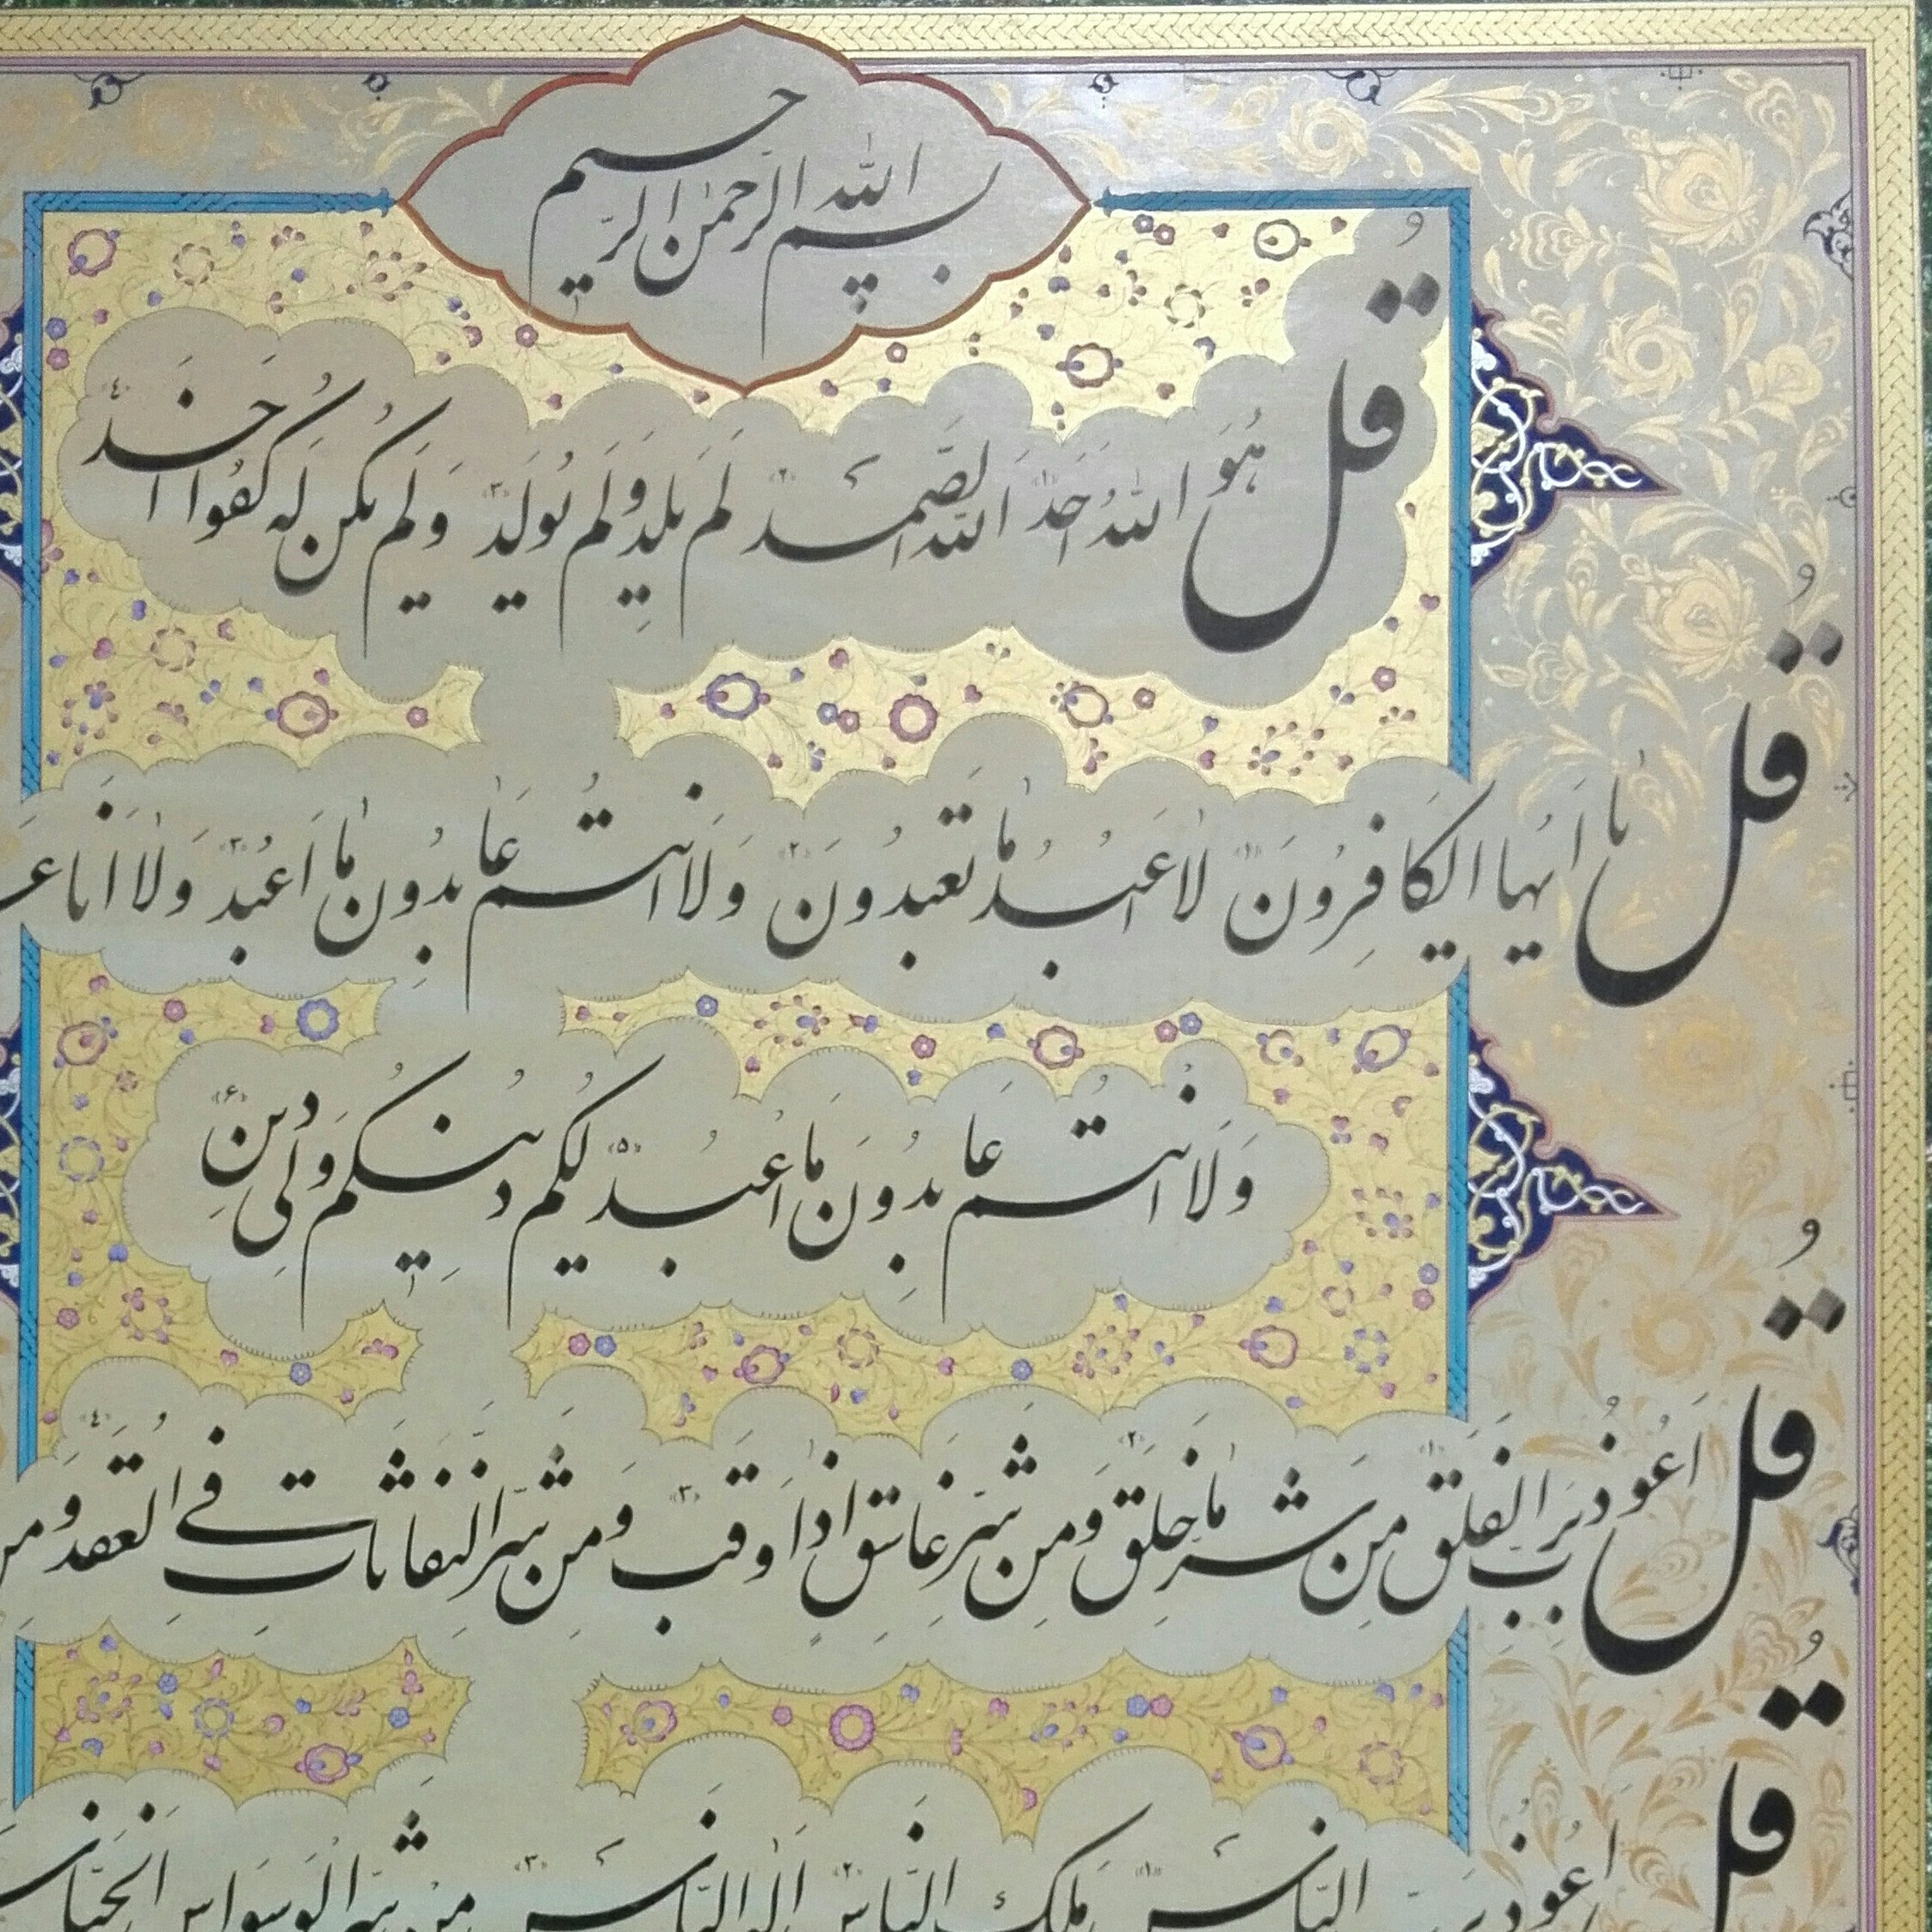 بسم الله الرحمن الرحیم
قُل هُوَ اللهُ اَحَد ﴿۱﴾ اَلله الصَّمَد ﴿۲﴾ لَم یَلِد وَلَم یُولَد ﴿۳﴾ وَلَم یَکُن لَه کُفُوا اَحَد ﴿٤﴾
قُل یا اَیُها الکافِرُونَ ﴿۱﴾ لا اَعبُدُ ما تَعبُدُونَ ﴿۲﴾ وَلا اَنتُم عابِدُون ما اَعبُد ﴿۳﴾ وَلا اَنا
وَلا اَنتُم عابِدُونَ ما اَعبُد ﴿۵﴾ لَکُم دینُکُم وَلِیَ دین ﴿۶﴾
قُل اَعُوذُ بِرَبِّ الفَلَق ﴿۱﴾ مِن شَرِّ ما خَلَق ﴿۲﴾ وَمِن شَرِّ غاسِقٍ اِذا وَقَب ﴿۳﴾ وَمِن شَرِّ النَّفّاثاتِ فِی العُقَد ﴿٤﴾ وَمِن
قُل اَعُوذُ بِرَبِّ النّاس ﴿۱﴾ مَلِکِ النّاس ﴿۲﴾ اِلهِ النّاس ﴿۳﴾ مِن شَرِّ الوَسواس الخَنّاس